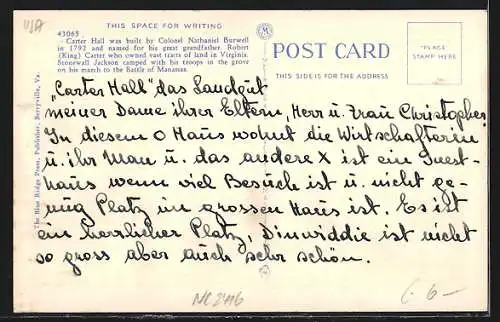 USA
THIS SPACE FOR WRITING
43065
Carter Hall was built by Colonel Nathaniel Burwell
in 1792 and named for his great grandfather, Robert
(King) Carter who owned vast tracts of land in Virginia.
Stonewall Jackson camped with his troops in the grove
on his march to the Battle of Manassas.
POST CARD
THIS SIDE IS FOR THE ADDRESS
PLACE
STAMP HERE
The Blue Ridge Press, Publisher, Berryville, Va.
"Carter Hall" das Landgut
meiner Dame ihrer Eltern, Herr u. Frau Christopher.
In diesem O Haus wohnt die Wirtschafterin
u. ihr Man u. das andere X ist ein Guest-
haus wenn viel Besuch ist u. nicht ge-
nug Platz im grossen Haus ist. Es ist
ein herrlicher Platz, Dinwiddie ist nicht
so gross aber auch sehr schön.
NC2416
6-